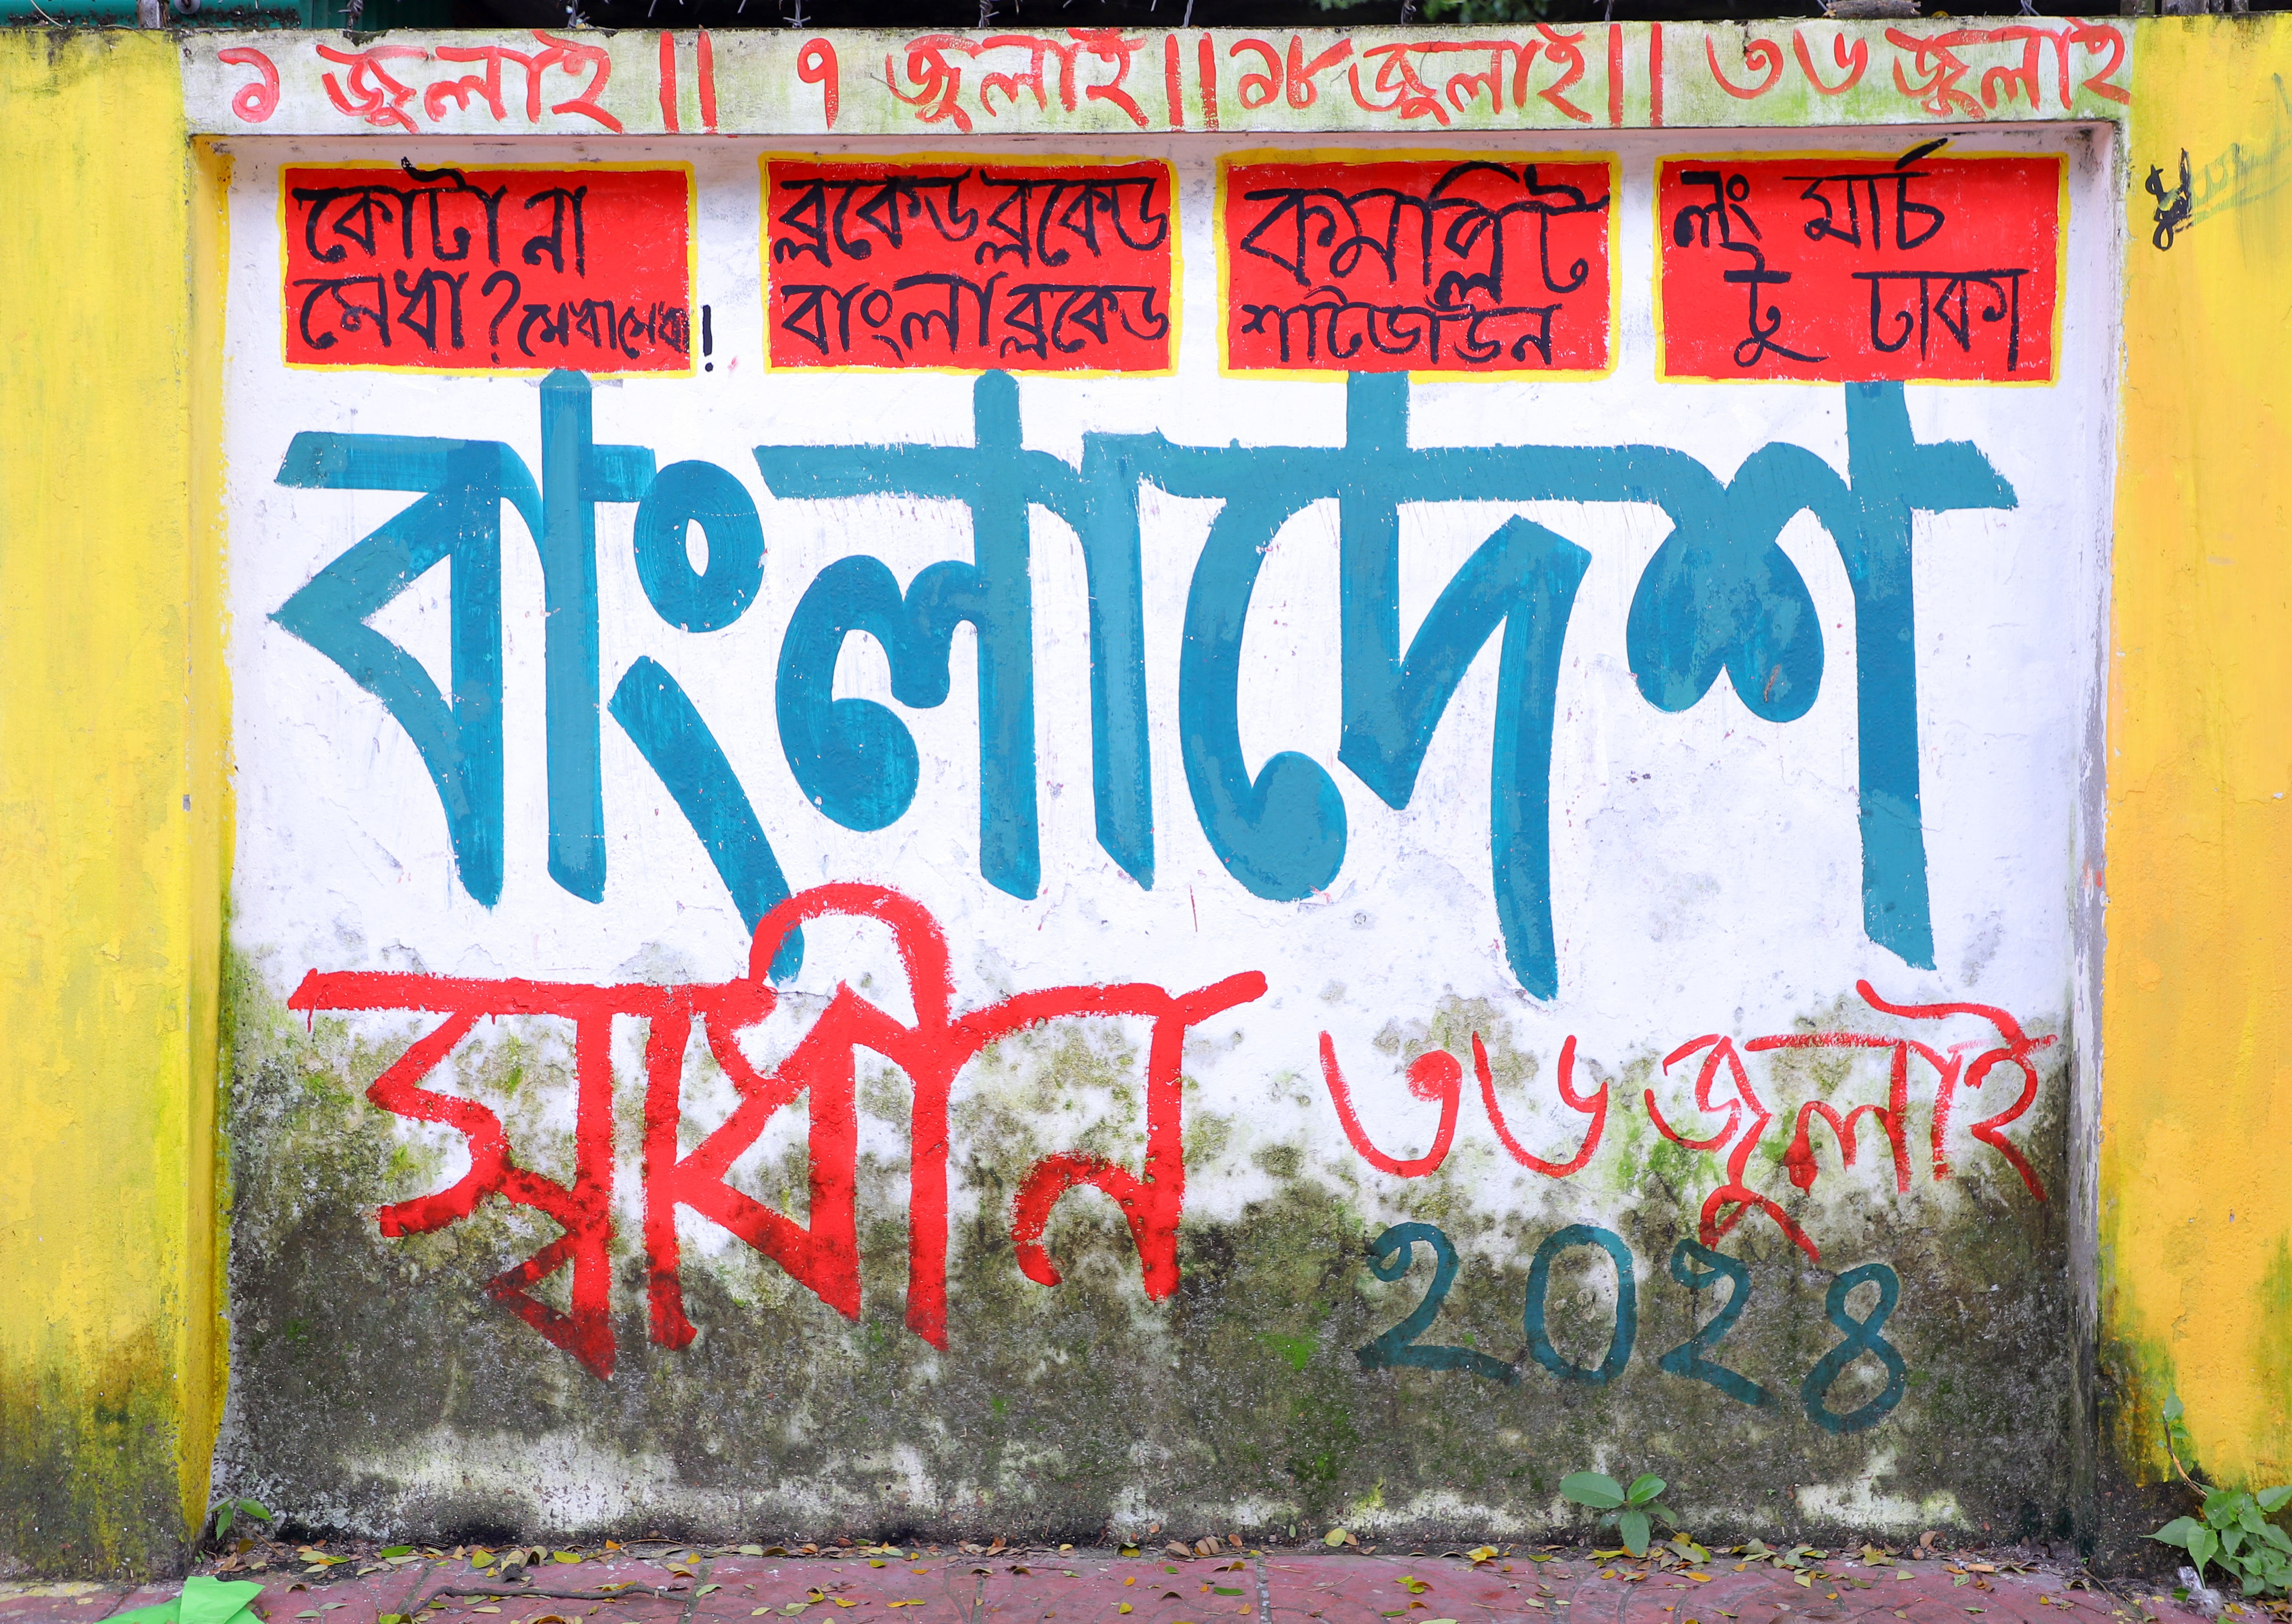 ১ জুলাই || ৭ জুলাই || ১৮ জুলাই || ৩৬ জুলাই
কোটা না
মেধা? মেধা মেধা!
ব্লকেড ব্লকেড
বাংলা ব্লকেড
কমপ্লিট
শাটডাউন
লং মার্চ
টু ঢাকা
বাংলাদেশ
স্বাধীন ৩৬ জুলাই
২০২৪